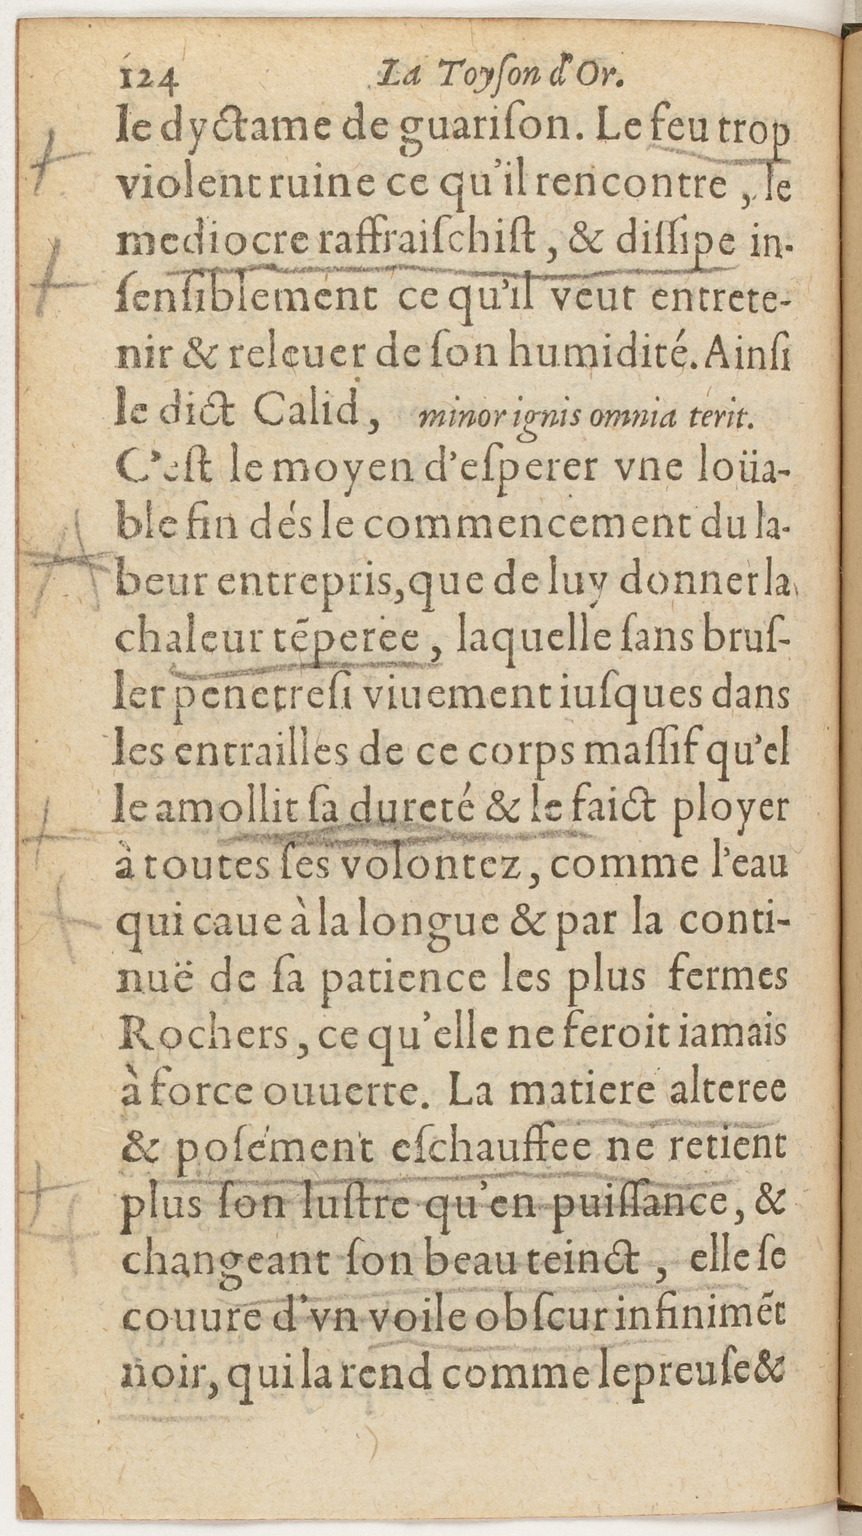 124 La Toyſon d'Or.
le dyctame de guariſon. Le feu trop
violent ruine ce qu'il rencontre, le
mediocre raffraiſchiſt, & diſſipe in-
ſenſiblement ce qu'il veut entrete-
nir & releuer de ſon humidité. Ainſi
le dict Calid, minor ignis omnia terit.
C'eſt le moyen d'eſperer vne loüa-
ble fin dés le commencement du la-
beur entrepris, que de luy donner la
chaleur tẽperee, laquelle ſans bruſ-
ler penetre ſi viuement iuſques dans
les entrailles de ce corps maſſif qu'el
le amollit ſa dureté & le faict ployer
à toutes ſes volontez, comme l'eau
qui caue à la longue & par la conti-
nuë de ſa patience les plus fermes
Rochers, ce qu'elle ne feroit iamais
à force ouuerte. La matiere alteree
& poſément eſchauffee ne retient
plus ſon luſtre qu'en puiſſance, &
changeant ſon beau teinct, elle ſe
couure d'vn voile obſcur infinimẽt
noir, qui la rend comme lepreuſe &